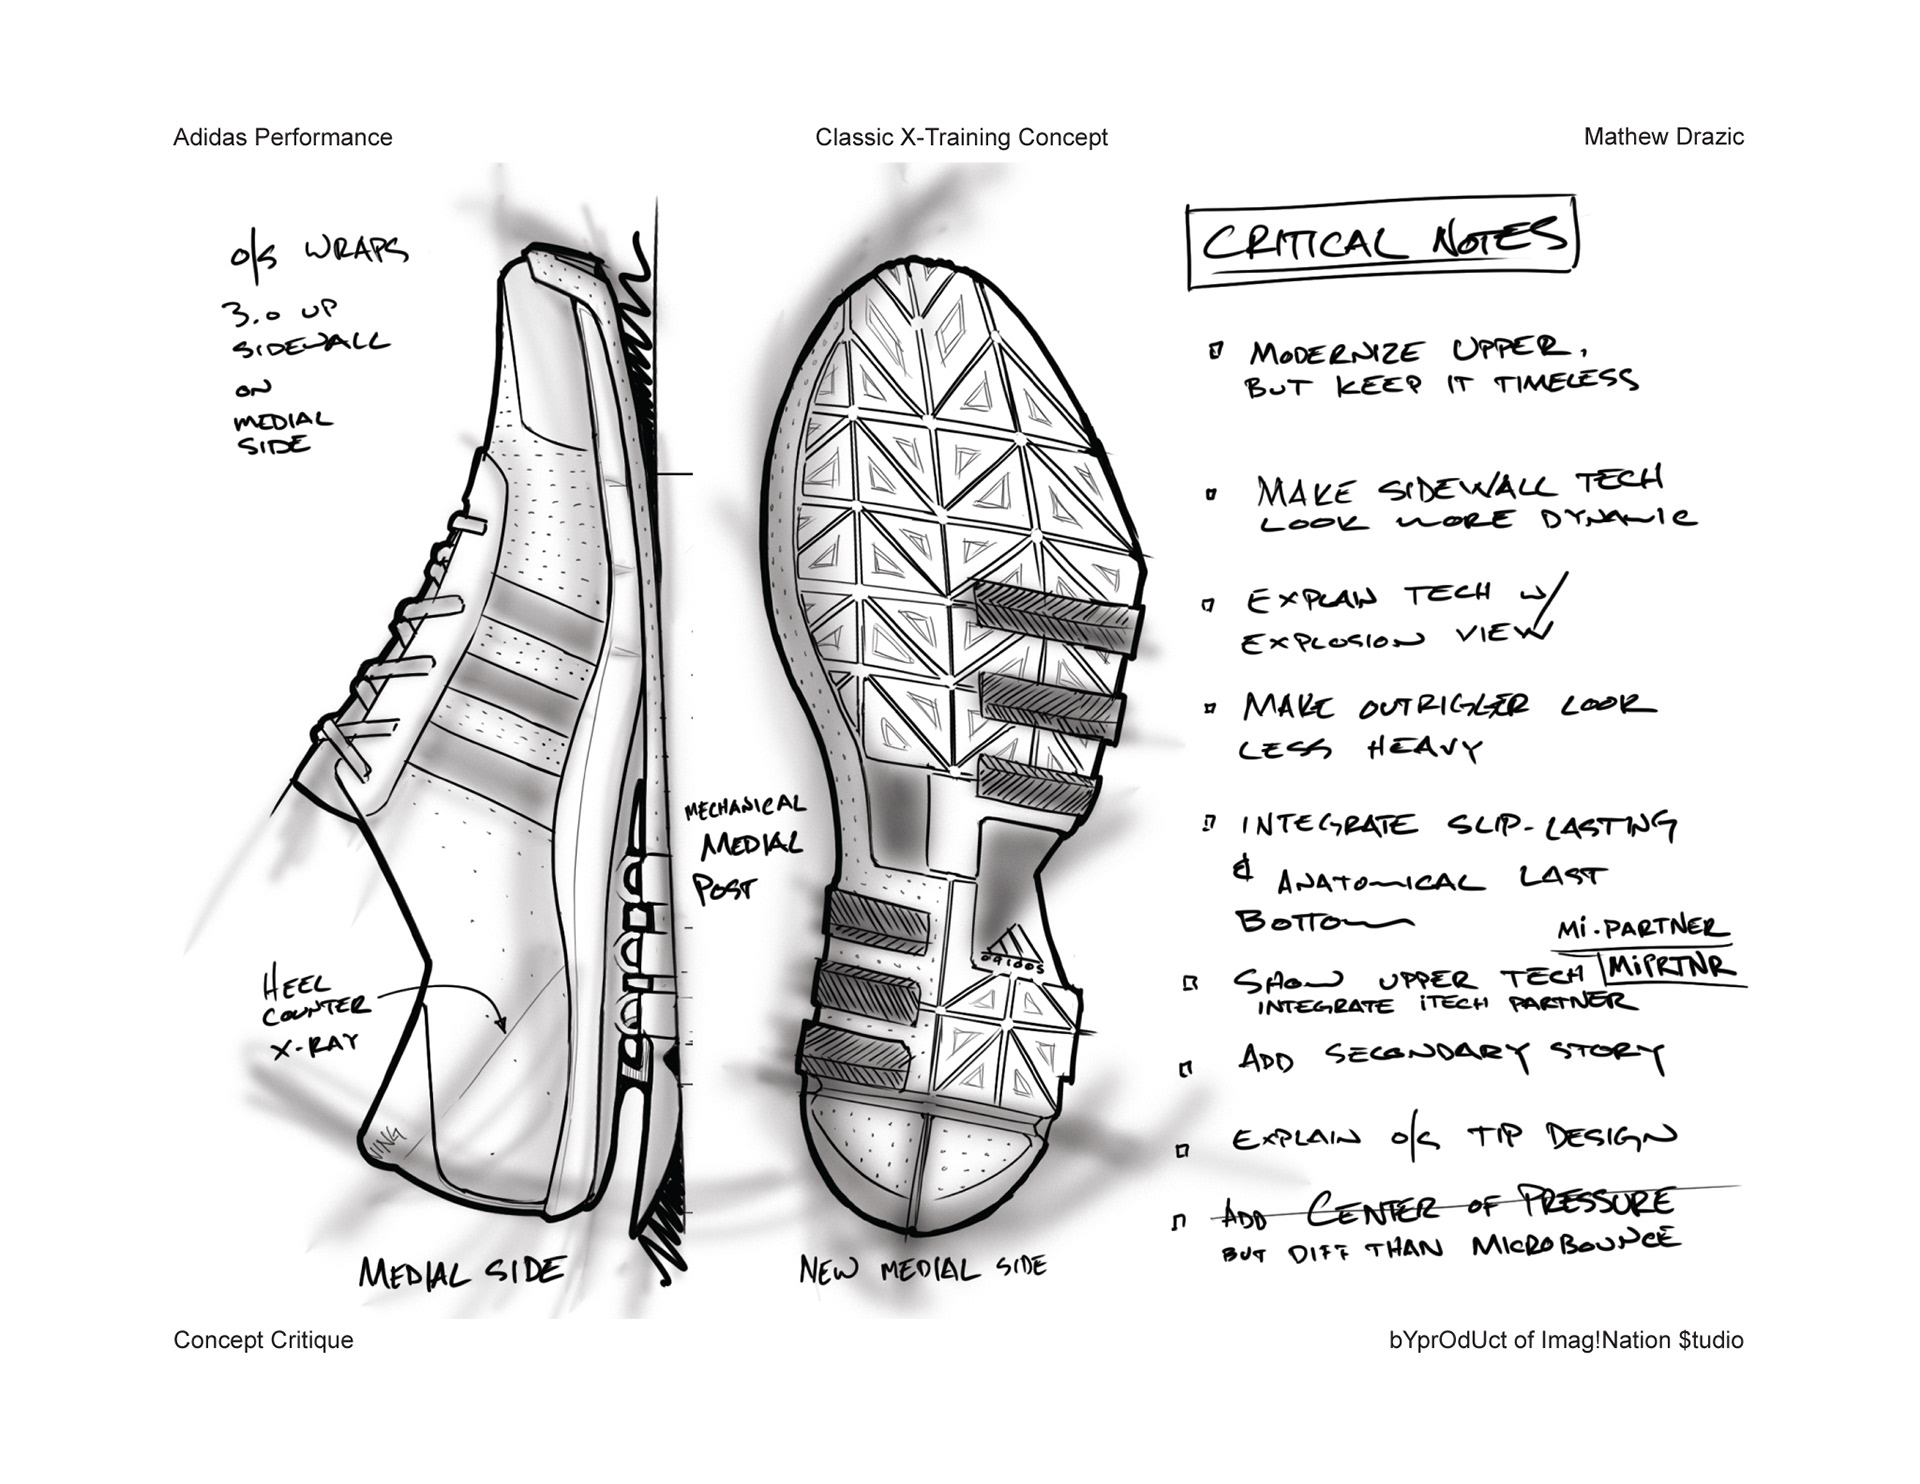 Adidas Performance
Classic X-Training Concept
Mathew Drazic
O/S WRAPS
3.0 UP
SIDEWALL
ON
MEDIAL
SIDE
HEEL
COUNTER
X-RAY
MEDIAL SIDE
MECHANICAL
MEDIAL
POST
adidas
NEW MEDIAL SIDE
CRITICAL NOTES
MODERNIZE UPPER,
BUT KEEP IT TIMELESS
MAKE SIDEWALL TECH
LOOK MORE DYNAMIC
EXPLAIN TECH W/
EXPLOSION VIEW
MAKE OUTRIGGER LOOK
LESS HEAVY
INTEGRATE SLIP-LASTING
& ANATOMICAL LAST
BOTTOM
Mi.PARTNER
MiPRTNR
SHOW UPPER TECH
INTEGRATE iTECH PARTNER
ADD SECONDARY STORY
EXPLAIN O/S TIP DESIGN
ADD CENTER OF PRESSURE
BUT DIFF THAN MICROBOUNCE
Concept Critique
bYprOdUct of Imag!Nation $tudio